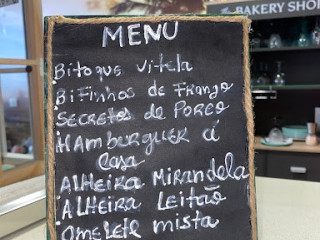 THE BAKERY SHOP
MENU
Bitoque Vitela
Bifinhos de Frango
Secretos de Porco
Hamburguer á
Casa
Alheira Mirandela
Alheira Leitão
Omelete mista